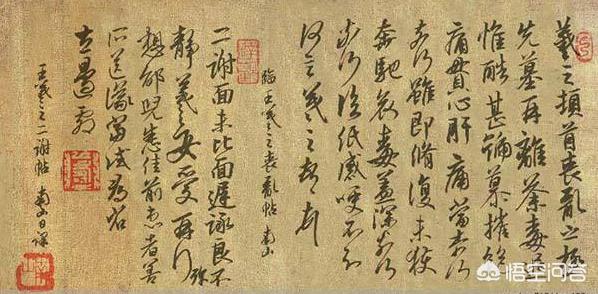 羲之頓首喪亂之極
先墓再離荼毒追
惟酷甚號慕摧絕
痛貫心肝痛當奈何
奈何雖即脩復未獲
奔馳哀毒益深奈何
奈何臨紙感哽不知
何言羲之頓首
臨王羲之喪亂帖 南山
二謝面未比面遲詠良不
靜羲女愛再
想邵兒悉佳前患者善
所送議當試尋省
左邊劇
王羲之二謝帖 南山日課
悟空问答